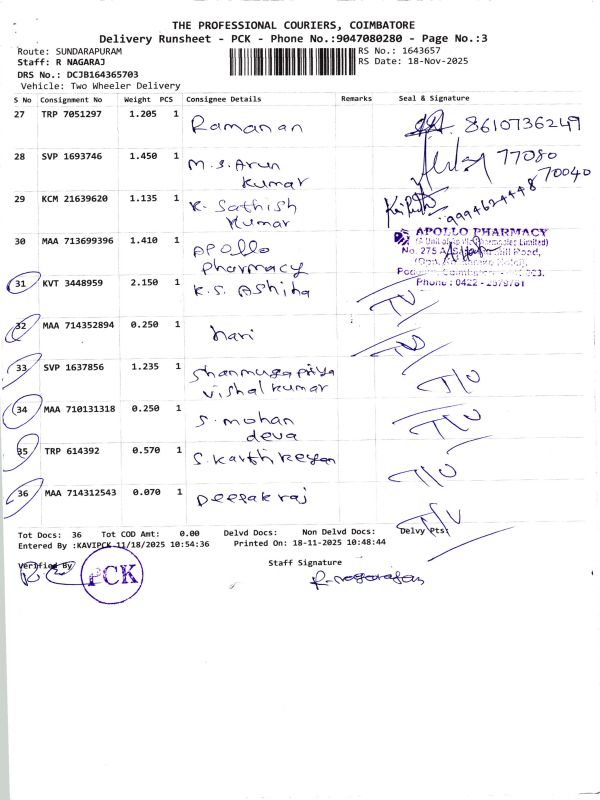 THE PROFESSIONAL COURIERS, COIMBATORE
Delivery Runsheet - PCK - Phone No.:9047080280 - Page No.:3
Route: SUNDARAPURAM RS No.: 1643657
Staff: R NAGARAJ RS Date: 18-Nov-2025
DRS No.: DCJB164365703
Vehicle: Two Wheeler Delivery
S No Consignment No Weight PCS Consignee Details Remarks Seal & Signature
27 TRP 7051297 1.205 1 Ramanan 8610736249
28 SVP 1693746 1.450 1 M.S.Arun 77080
Kumar 70040
29 KCM 21639620 1.135 1 K. Sathish 9994624448
Kumar
30 MAA 713699396 1.410 1 Apollo APOLLO PHARMACY
pharmacy No. 275 A
Phone : 0422 -
31 KVT 3448959 2.150 1 K.S. Ashina
32 MAA 714352894 0.250 1 hari
33 SVP 1637856 1.235 1 Shanmuga priya T/U
vishal kumar
34 MAA 710131318 0.250 1 S. mohan T/U
deva
35 TRP 614392 0.570 1 S. Karthikeyan T/U
36 MAA 714312543 0.070 1 Deepak raj T/U
Tot Docs: 36 Tot COD Amt: 0.00 Delvd Docs: Non Delvd Docs: Delvy Pts:
Entered By :KAVIPCK 11/18/2025 10:54:36 Printed On: 18-11-2025 10:48:44
Verified By PCK Staff Signature
R. nagarajan